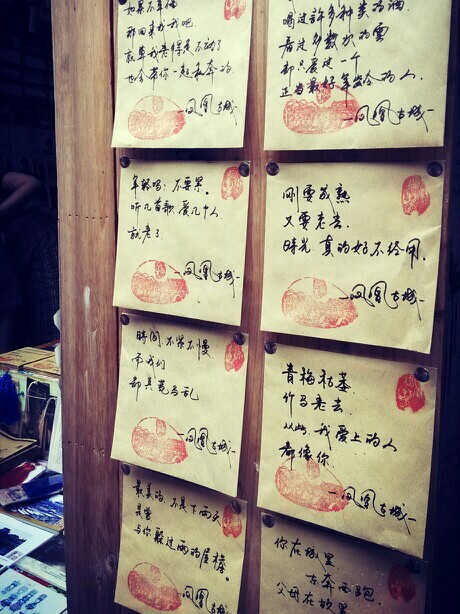 如果不幸福
那回来找我吧
就算我老得走不动了
也会带你一起私奔的
—凤凰古城—
喝过许多种类的酒
却只爱过一个
正当最好年龄的人.
—凤凰古城—
听几首歌 爱几个人
就老了
—凤凰古城—
刚要成熟
又要老去.
时光,真的好不经用.
—凤凰古城—
時间,不紧不慢
而我们
却兵荒马乱
—凤凰古城—
青梅枯萎.
竹马老去.
从此,我爱上的人
都像你.
—凤凰古城—
最美的,不是下雨天
是曾
与你躲过雨的屋檐.
—凤凰古城—
你在城里
东奔西跑
父母在故里